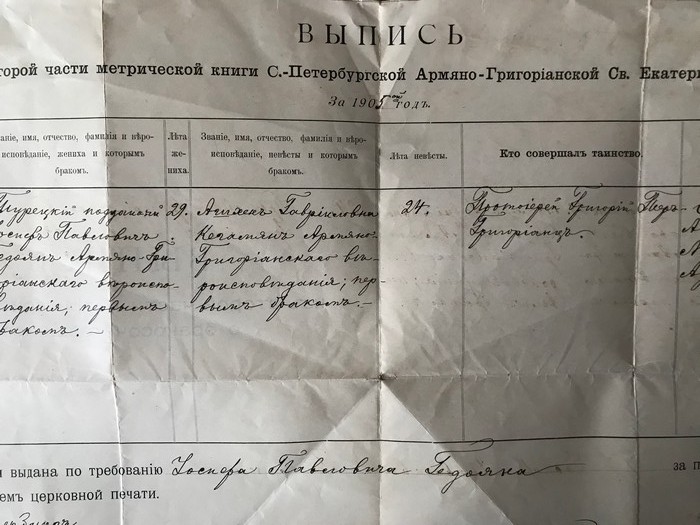 ВЫПИСЬ
торой части метрической книги С.-Петербургской Армяно-Григоріанской Св. Екатери
За 1905ой годъ.
Званіе, имя, отчество, фамилія и вѣро-
исповѣданіе, жениха и которымъ
бракомъ.
Лѣта
же-
ниха.
Званіе, имя, отчество, фамилія и вѣро-
исповѣданіе, невѣсты и которымъ
бракомъ.
Лѣта невѣсты.
Кто совершалъ таинство.
Турецкій подданный
Іосифъ Павловичъ
Гедоянъ Армяно-Гри-
горіанскаго вѣроиспо-
вѣданія; первымъ
бракомъ. —
29.
Гавріиловна
Армяно-
Григоріанскаго вѣ-
роисповѣданія; пер-
вымъ бракомъ. —
24.
Протоіерей Григорій Теръ-
Григоріанцъ.
я выдана по требованію Іосифа Павловича Гедояна за п
емъ церковной печати.